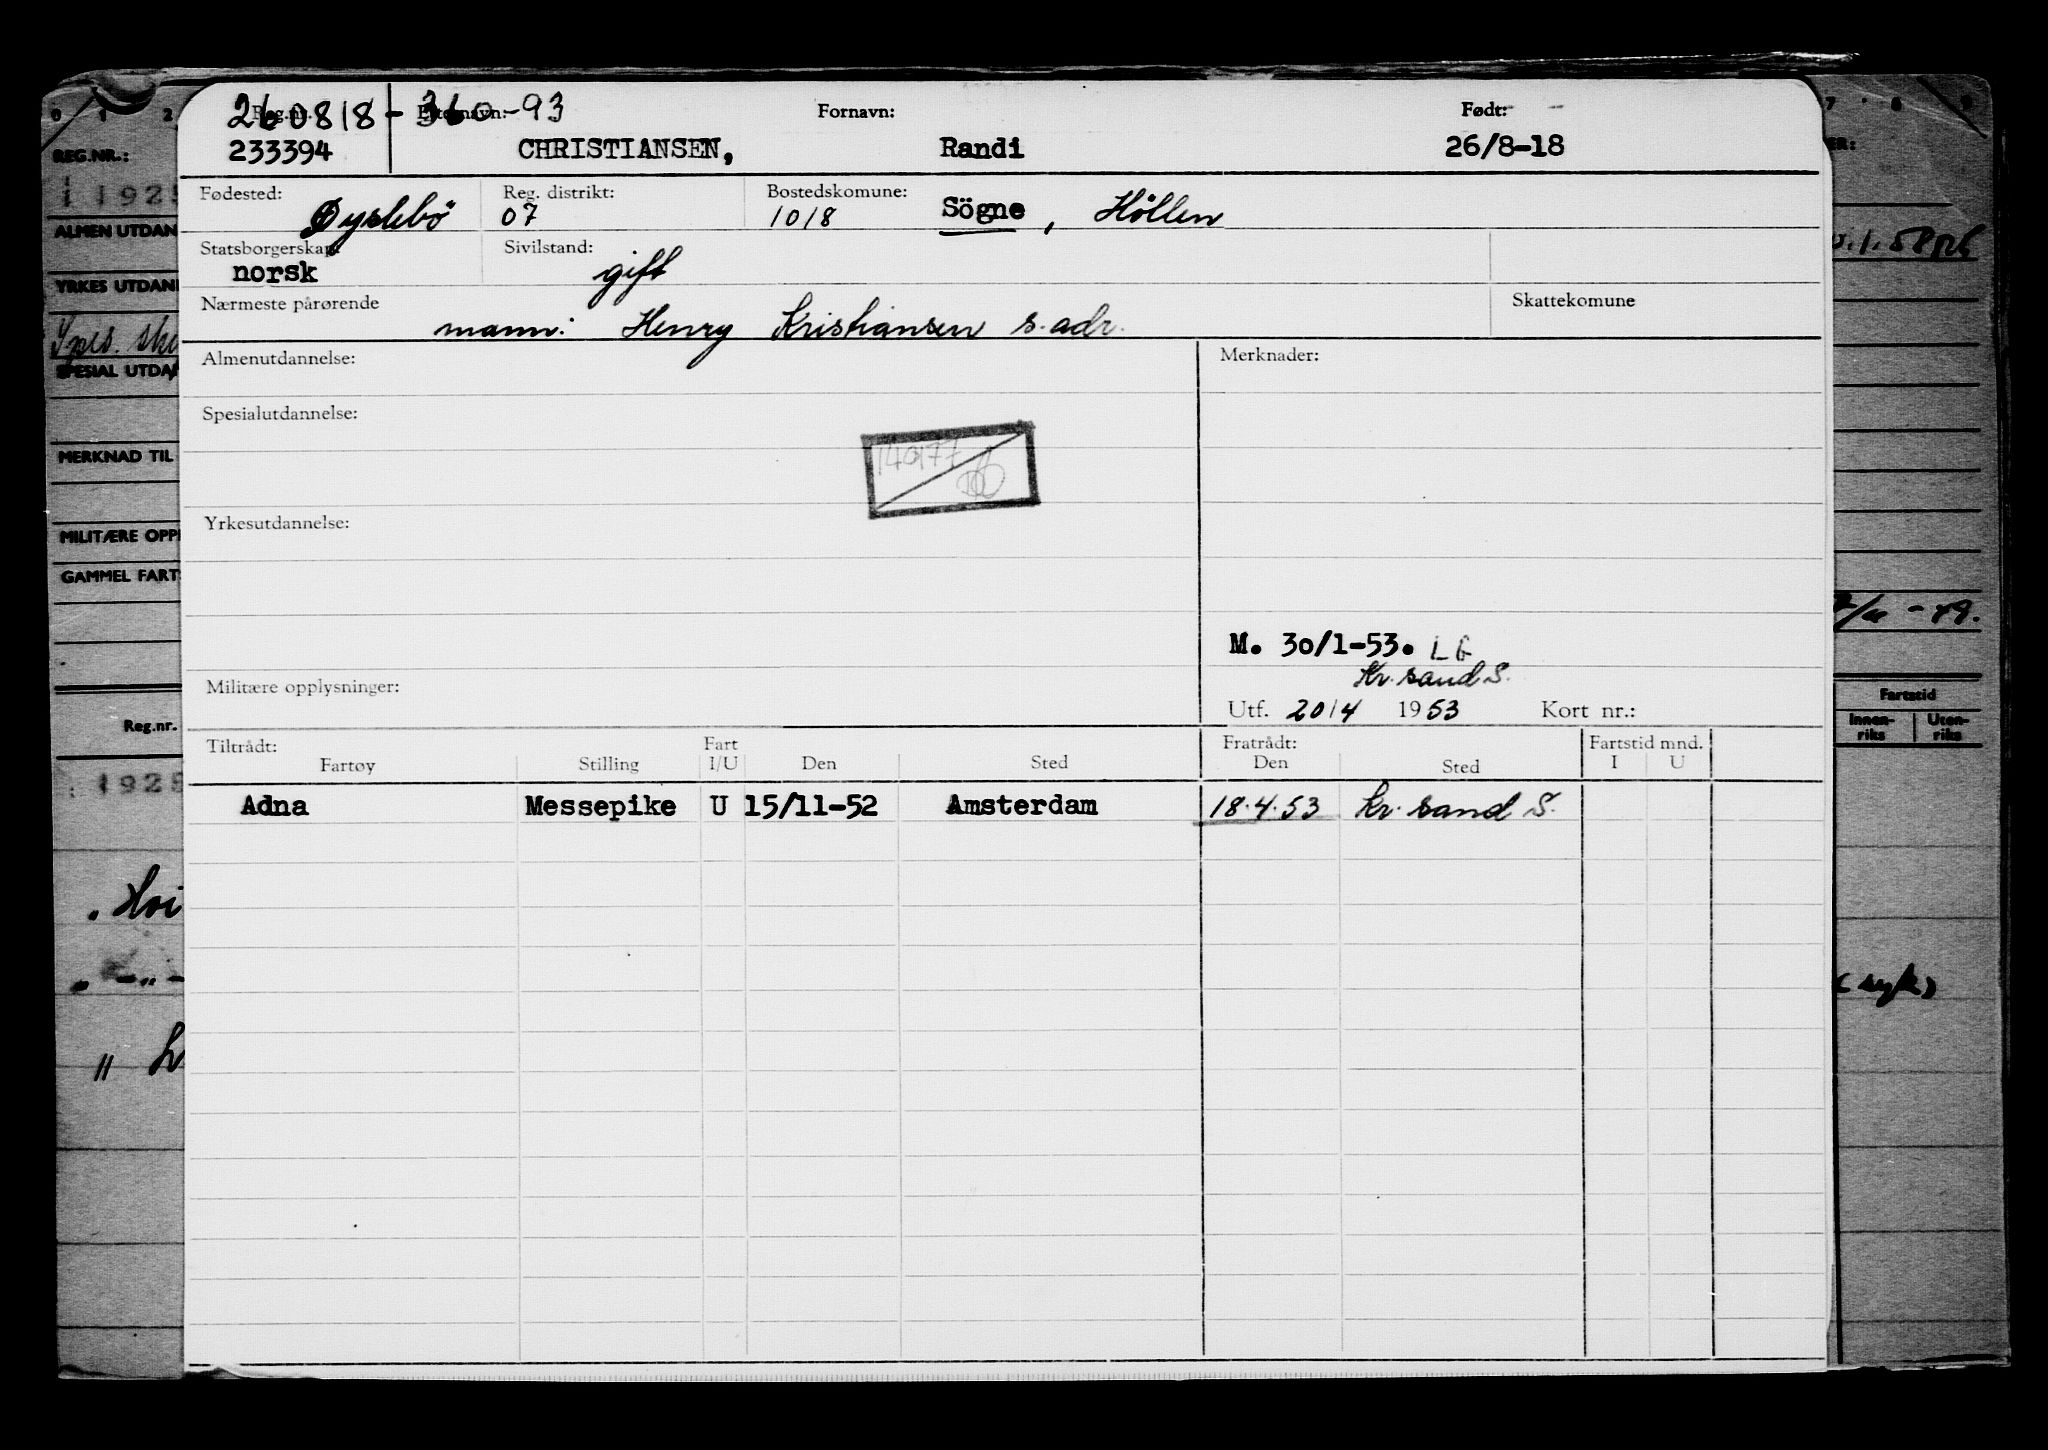 0 1 2 7 8 9
260818-360-93
Reg.nr. Etternavn: Fornavn: Født:
REG.NR.: 233394 CHRISTIANSEN, Randi 26/8-18
1925
Fødested: Reg. distrikt: Bostedskomune:
Øyslebö 07 1018 Sögne, Höllen
ALMEN UTDAN
Statsborgerskap: Sivilstand:
norsk gift
YRKES UTDAN
Nærmeste pårørende Skattekomune
mann: Henry Kristiansen s. adr.
Spes.
SPESIAL UTDA
Almenutdannelse: Merknader:
Spesialutdannelse:
140177
MERKNAD TIL
Yrkesutdannelse:
MILITÆRE OPPL
GAMMEL FART
M. 30/1-53. LG
Kr. sand S.
Militære opplysninger:
Utf. 20/4 1953 Kort nr.:
Fartstid
Reg.nr. Innen-riks Uten-riks
Tiltrådt: Fart Fratrådt: Fartstid mnd.
Fartøy Stilling I/U Den Sted Den Sted I U
1925
Adna Messepike U 15/11-52 Amsterdam 18.4.53 Kr. sand S.
(syk)